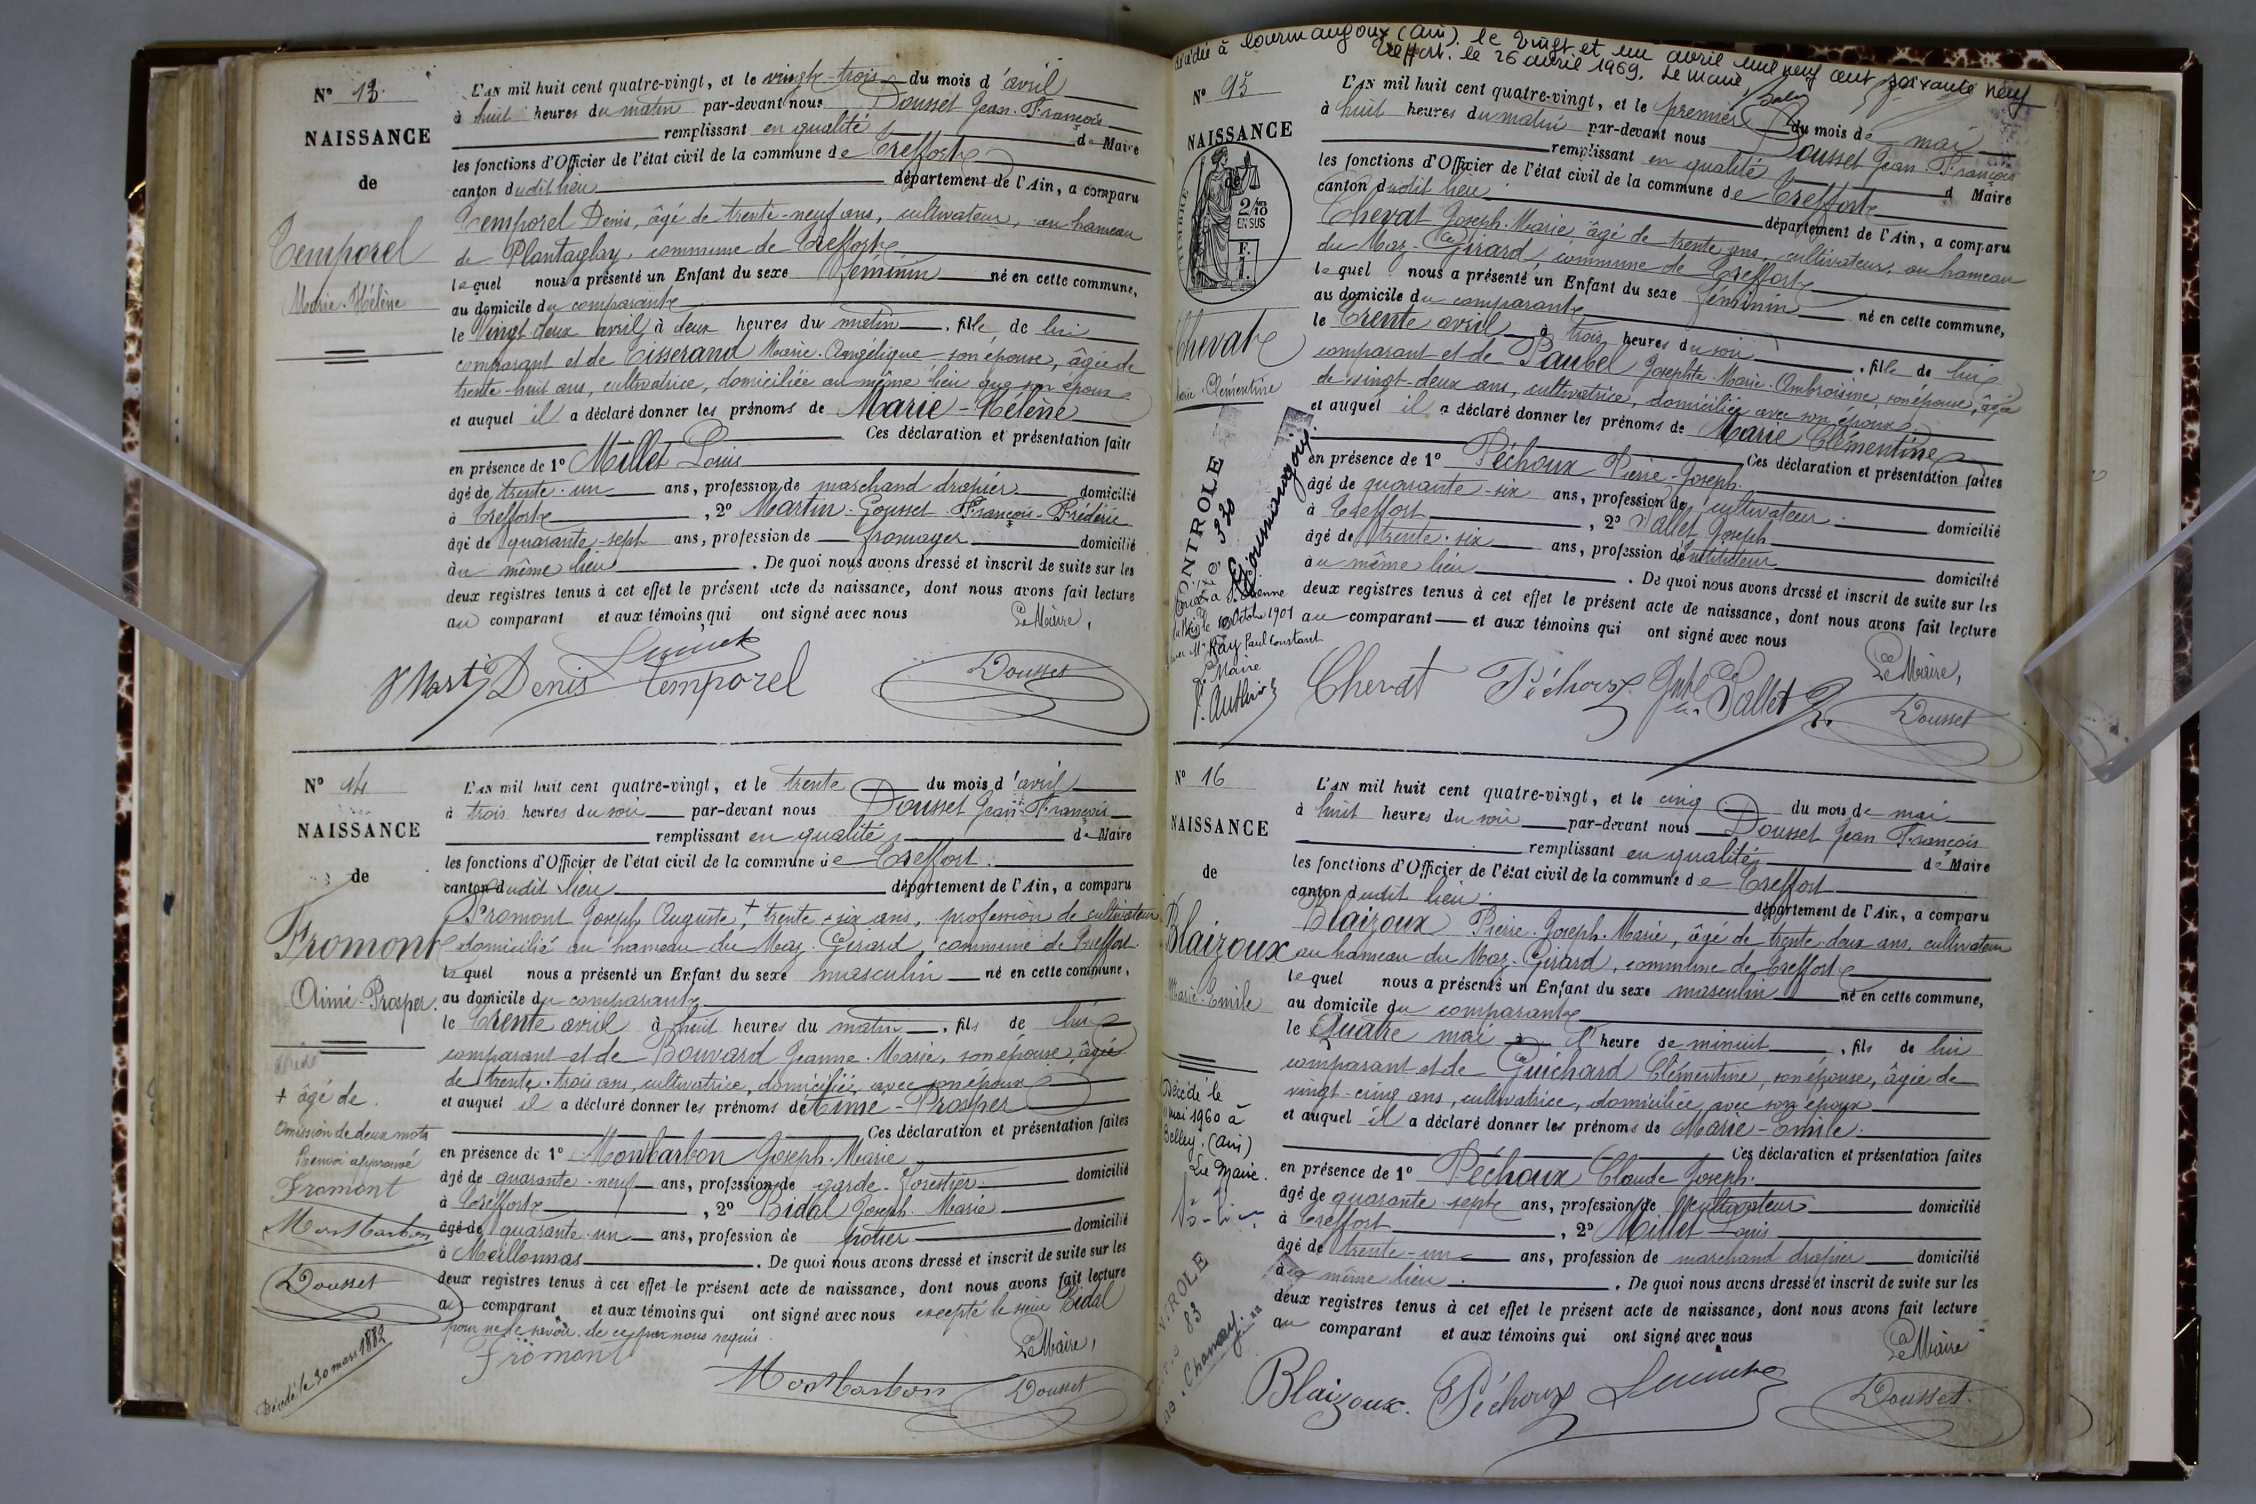 N° 13.
NAISSANCE
de
Temporel
Marie-Hélène
L'AN mil huit cent quatre-vingt, et le vingt-trois du mois d'avril
à huit heures du matin par-devant nous Dousset Jean-François
remplissant en qualité de Maire
les fonctions d'Officier de l'état civil de la commune de Treffort
canton dudit lieu département de l'Ain, a comparu
Temporel Denis, âgé de trente-neuf ans, cultivateur, au hameau
de Plantaglay, commune de Treffort
lequel nous a présenté un Enfant du sexe féminin né en cette commune,
au domicile du comparant
le Vingt deux avril à deux heures du matin, fille de lui
comparant et de Tisserand Marie-Angélique son épouse, âgée de
trente-huit ans, cultivatrice, domiciliée au même lieu que son époux
et auquel il a déclaré donner les prénoms de Marie-Hélène
Ces déclaration et présentation faites
en présence de 1° Millet Louis
âgé de trente-un ans, profession de marchand drapier domicilié
à Treffort, 2° Martin-Gousset François-Frédéric
âgé de quarante-sept ans, profession de fromager domicilié
au même lieu. De quoi nous avons dressé et inscrit de suite sur les
deux registres tenus à cet effet le présent acte de naissance, dont nous avons fait lecture
au comparant et aux témoins qui ont signé avec nous
Le Maire,
Denis Temporel
Dousset
N° 14
NAISSANCE
de
Fromont
Aimé-Prosper.
+ âgé de.
Omission de deux mots
Renvoi approuvé
Fromont
Montbarbon
Dousset
Décédé le 30 mars 1882
L'AN mil huit cent quatre-vingt, et le trente du mois d'avril
à trois heures du soir par-devant nous Dousset Jean-François
remplissant en qualité de Maire
les fonctions d'Officier de l'état civil de la commune de Treffort
canton dudit lieu département de l'Ain, a comparu
Fromont Joseph Auguste, + trente-six ans, profession de cultivateur
domicilié au hameau du Maz-Girard, commune de Treffort
lequel nous a présenté un Enfant du sexe masculin né en cette commune,
au domicile du comparant
le Trente avril à huit heures du matin, fils de lui
comparant et de Bouvard Jeanne-Marie, son épouse, âgée
de trente-trois ans, cultivatrice, domiciliée avec son époux
et auquel il a déclaré donner les prénoms de Aimé-Prosper
Ces déclaration et présentation faites
en présence de 1° Montbarbon Joseph-Marie
âgé de quarante-neuf ans, profession de garde-forestier domicilié
à Treffort, 2° Bidal Joseph-Marie
âgé de quarante-un ans, profession de potier domicilié
à Meillonnas. De quoi nous avons dressé et inscrit de suite sur les
deux registres tenus à cet effet le présent acte de naissance, dont nous avons fait lecture
au comparant et aux témoins qui ont signé avec nous excepté le sieur Bidal
pour ne le savoir de ce par nous requis.
Le Maire,
Fromont
Montbarbon
Dousset
décédée à Cormangoux (Ain). le vingt et un avril mil neuf cent soixante neuf
Treffort. le 26 avril 1969. Le maire,
N° 95
NAISSANCE
de
TIMBRE
2/10
EN SUS
Chevat
Marie-Clémentine
CONTROLE
N° 330
Cormangoux.
10 Octobre 1901
avec Mr Ray Paul Constant
Le Maire
L'AN mil huit cent quatre-vingt, et le premier du mois de mai
à huit heures du matin par-devant nous Dousset Jean François
remplissant en qualité d Maire
les fonctions d'Officier de l'état civil de la commune de Treffort
canton dudit lieu département de l'Ain, a comparu
Chevat Joseph-Marie âgé de trente ans, cultivateur, au hameau
du Maz-Girard, commune de Treffort
lequel nous a présenté un Enfant du sexe féminin né en cette commune,
au domicile du comparant
le Trente avril à trois heures du soir, fille de lui
comparant et de Paubel Josephte-Marie-Ambroisine, son épouse, âgée
de vingt-deux ans, cultivatrice, domiciliée avec son époux
et auquel il a déclaré donner les prénoms de Marie Clémentine
Ces déclaration et présentation faites
en présence de 1° Péchoux Pierre-Joseph.
âgé de quarante-six ans, profession de cultivateur domicilié
à Treffort, 2° Vallet Joseph
âgé de trente-six ans, profession de Instituteur domicilié
au même lieu. De quoi nous avons dressé et inscrit de suite sur les
deux registres tenus à cet effet le présent acte de naissance, dont nous avons fait lecture
au comparant et aux témoins qui ont signé avec nous
Le Maire,
Chevat Péchoux Vallet
Dousset
N° 16
NAISSANCE
de
Blaizoux
Marie-Emile
Décédé le
mai 1960 à
Belley. (Ain)
Le Maire.
L'AN mil huit cent quatre-vingt, et le cinq du mois de mai
à huit heures du soir par-devant nous Dousset Jean François
remplissant en qualité de Maire
les fonctions d'Officier de l'état civil de la commune de Treffort
canton dudit lieu département de l'Ain, a comparu
Blaizoux Pierre-Joseph-Marie, âgé de trente deux ans, cultivateur
au hameau du Maz-Girard, commune de Treffort
lequel nous a présenté un Enfant du sexe masculin né en cette commune,
au domicile du comparant
le Quatre mai à l'heure de minuit, fils de lui
comparant et de Guichard Clémentine, son épouse, âgée de
vingt-cinq ans, cultivatrice, domiciliée avec son époux
et auquel il a déclaré donner les prénoms de Marie-Emile.
Ces déclaration et présentation faites
en présence de 1° Péchoux Claude Joseph.
âgé de quarante sept ans, profession de cultivateur domicilié
à Treffort, 2° Millet Louis
âgé de trente-un ans, profession de marchand drapier domicilié
au même lieu. De quoi nous avons dressé et inscrit de suite sur les
deux registres tenus à cet effet le présent acte de naissance, dont nous avons fait lecture
au comparant et aux témoins qui ont signé avec nous
Le Maire
Blaizoux. Péchoux
Dousset.